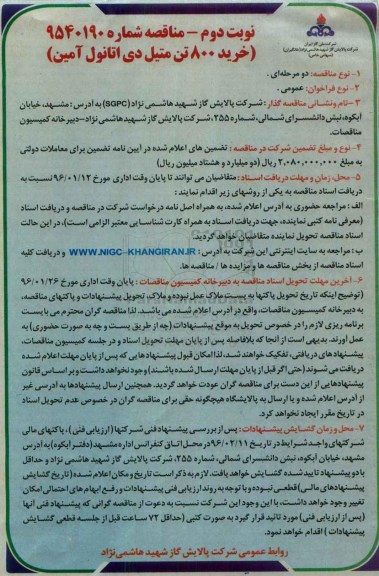 شرکت ملی گاز ایران
شرکت پالایش گاز شهید هاشمی نژاد (خانگیران)
(سهامی خاص)
نوبت دوم – مناقصه شماره ۹۵۴۰۱۹۰
(خرید ۸۰۰ تن متیل دی اتانول آمین)
۱- نوع مناقصه: دو مرحله‌ای .
۲- نوع فراخوان: عمومی .
۳- نام ونشانی مناقصه گذار : شرکت پالایش گاز شهید هاشمی نژاد (SGPC) به آدرس : مشهد، خیابان
آبکوه، نبش دانشسرای شمالی، شماره ۲۵۵، شرکت پالایش گاز شهیدهاشمی نژاد-دبیرخانه کمیسیون
مناقصات.
۴- نوع و مبلغ تضمین شرکت در مناقصه : تضمین های اعلام شده در آیین نامه تضمین برای معاملات دولتی
به مبلغ ۲,۰۸۰,۰۰۰,۰۰۰ ریال (دو میلیارد و هشتاد میلیون ریال)
۵- محل، زمان و مهلت دریافت اسناد : متقاضیان می توانند تا پایان وقت اداری مورخ ۹۶/۰۱/۱۲ نسبت به
دریافت اسناد مناقصه به یکی از روشهای زیر اقدام نمایند :
الف : مراجعه حضوری به آدرس اعلام شده، به همراه اصل نامه درخواست شرکت در مناقصه و دریافت اسناد
(معرفی نامه کتبی نماینده، جهت دریافت اسناد به همراه کارت شناسایی معتبر الزامی است)، در این حالت
اسناد مناقصه تحویل نماینده متقاضیان خواهد گردید.
ب : مراجعه به سایت اینترنتی این شرکت به آدرس : WWW.NIGC-KHANGIRAN.IR و دریافت کلیه
اسناد مناقصه از بخش مناقصه ها و مزایده ها / مناقصه ها.
۶- آخرین مهلت تحویل اسناد مناقصه به دبیرخانه کمیسیون مناقصات : پایان وقت اداری مورخ ۹۶/۰۱/۲۶
(توضیح اینکه تاریخ تحویل پاکتها به پست ملاک عمل نبوده و ملاک، تحویل پیشنهادات و پاکتهای مناقصه،
به دبیرخانه کمیسیون مناقصات، واقع در آدرس اعلام شده می باشد. لذا مناقصه گران محترم می بایست
برنامه ریزی لازم را در خصوص تحویل به موقع پیشنهادات (چه از طریق پست و چه به صورت حضوری) به
عمل آورند. بدیهی است از آنجا که بلافاصله پس از پایان مهلت تحویل اسناد و در جلسه کمیسیون مناقصات،
پیشنهادهای دریافتی، تفکیک خواهند شد، لذا امکان قبول پیشنهادهایی که پس از پایان مهلت اعلام شده
دریافت می شوند (حتی اگر قبل از پایان مهلت ارسال شده باشند) وجود نخواهد داشت و بر اساس قانون
پیشنهادهایی از این دست برای مناقصه گران عودت خواهد گردید. همچنین ارسال پیشنهادها به آدرسی غیر
از آدرس اعلام شده و یا ارسال به پالایشگاه هیچگونه حقی برای مناقصه گران در خصوص عدم تحویل اسناد
در تاریخ مقرر ایجاد نخواهد کرد.
۷- محل و زمان گشایش پیشنهادات : پس از بررسی پیشنهاد فنی شرکتها (ارزیابی فنی) ، پاکتهای مالی
شرکتهای واجد شرایط در تاریخ ۹۶/۰۲/۱۱ در محل اتاق کنفرانس اداره مشهد (دفتر آبکوه) به آدرس
مشهد، خیابان آبکوه، نبش دانشسرای شمالی، شماره ۲۵۵، شرکت پالایش گاز شهید هاشمی نژاد و حداقل
با دو پیشنهاد تایید شده گشایش خواهد یافت. لازم به ذکر است تاریخ و مکان اعلام شده (تاریخ گشایش
پیشنهادهای مالی) قطعی نبوده و با توجه به روند ارزیابی فنی پیشنهادات و رفع ابهام های احتمالی امکان
تغییر وجود خواهد داشت، با این وجود این شرکت نسبت به دعوت از مناقصه گرانی که پیشنهاد فنی آنها
(پس از ارزیابی فنی) مورد تائید قرار گیرد به صورت کتبی (حداقل ۷۲ ساعت قبل از جلسه قطعی گشایش
پیشنهادات ) اقدام خواهد نمود.
روابط عمومی شرکت پالایش گاز شهید هاشمی‌نژاد